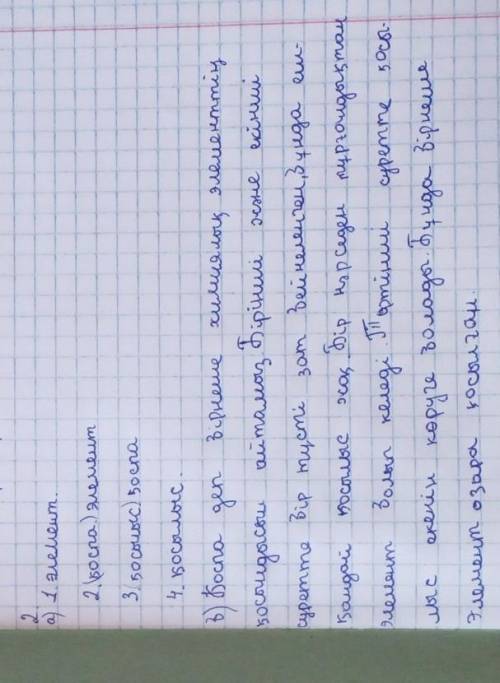 2
а) 1 элемент.
2. (қоспа) элемент
3. (қосылыс) қоспа
4. қосылыс.
в) Қоспа деп бірнеше химиялық элементтің
қосындысын айтамыз. Бірінші және екінші
суретте бір түсті зат бейнеленген, Бұнда еш-
қандай қосылыс жоқ. Бір нәрседен тұрғандықтан
элемент болып келеді. Төртінші суретте қосы-
лыс екенін көруге болады. Бұнда бірнеше
элемент өзара қосылған.